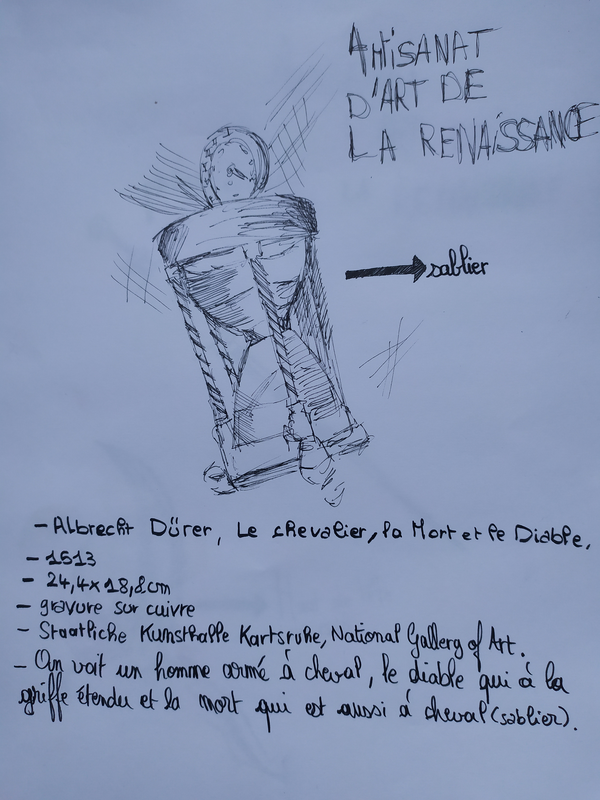 ARTISANAT
D'ART DE
LA RENAISSANCE
sablier
- Albrecht Dürer, Le chevalier, la Mort et le Diable,
- 1513
- 24,4 x 18,8cm
- gravure sur cuivre
- Staatliche Kunsthalle Kartsruhe, National Gallerg of Art.
- On voit un homme armé à cheval, le diable qui à la
griffe étendu et la mort qui est aussi à cheval (sablier).